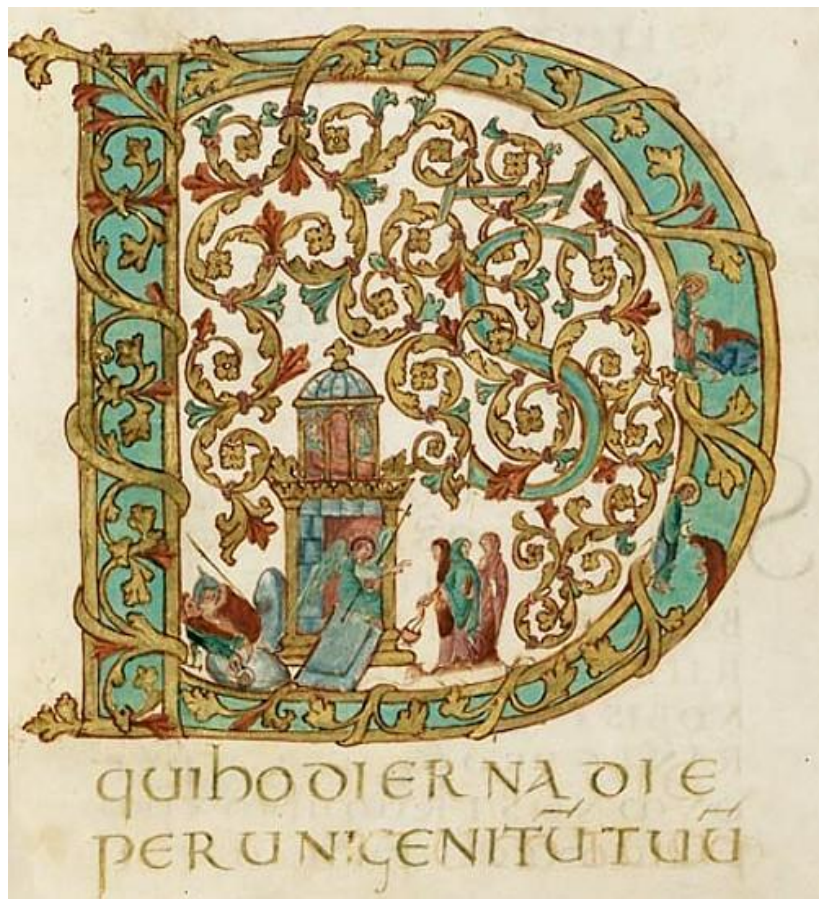 DS̄
quihodierna die
PER UNIGENITŪ TUŪ